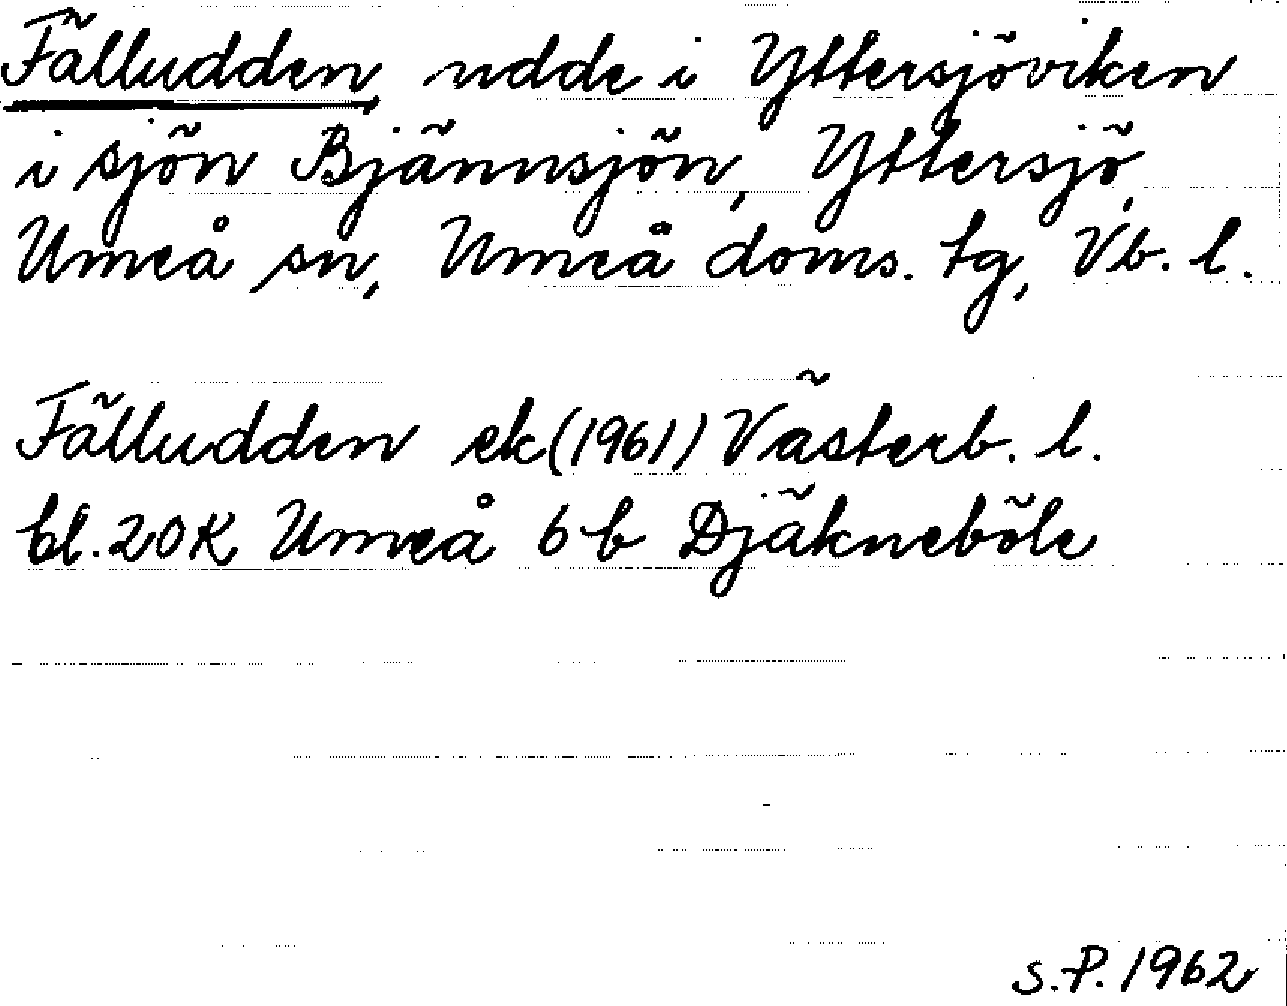 Fälludden, udde i Yttersjöviken
i sjön Bjännsjön, Yttersjö,
Umeå sn, Umeå doms. tg, Vb. l.
Fälludden ek (1961) Västerb. l.
bl. 20K Umeå 6b Djäkneböle
S.P. 1962